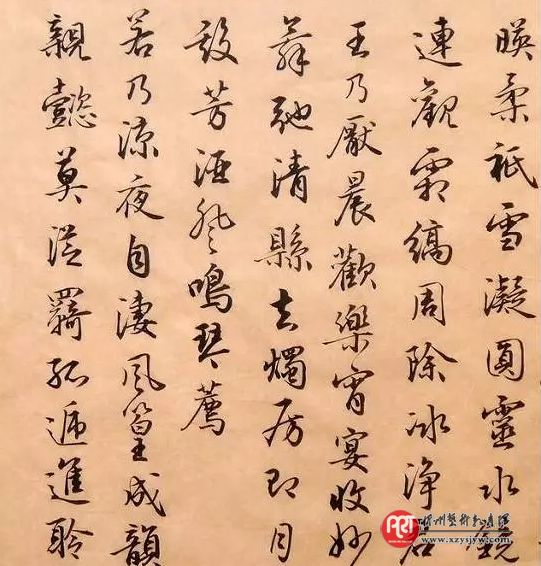 暎柔祇雪凝圓靈水鏡
連觀霜縞周除冰淨君
王乃厭晨歡樂宵宴收妙
舞弛清縣去燭房即月
殿芳酒登鳴琴薦
若乃涼夜自淒風篁成韻
親懿莫從羇孤遞進聆
www.xzysjyw.com